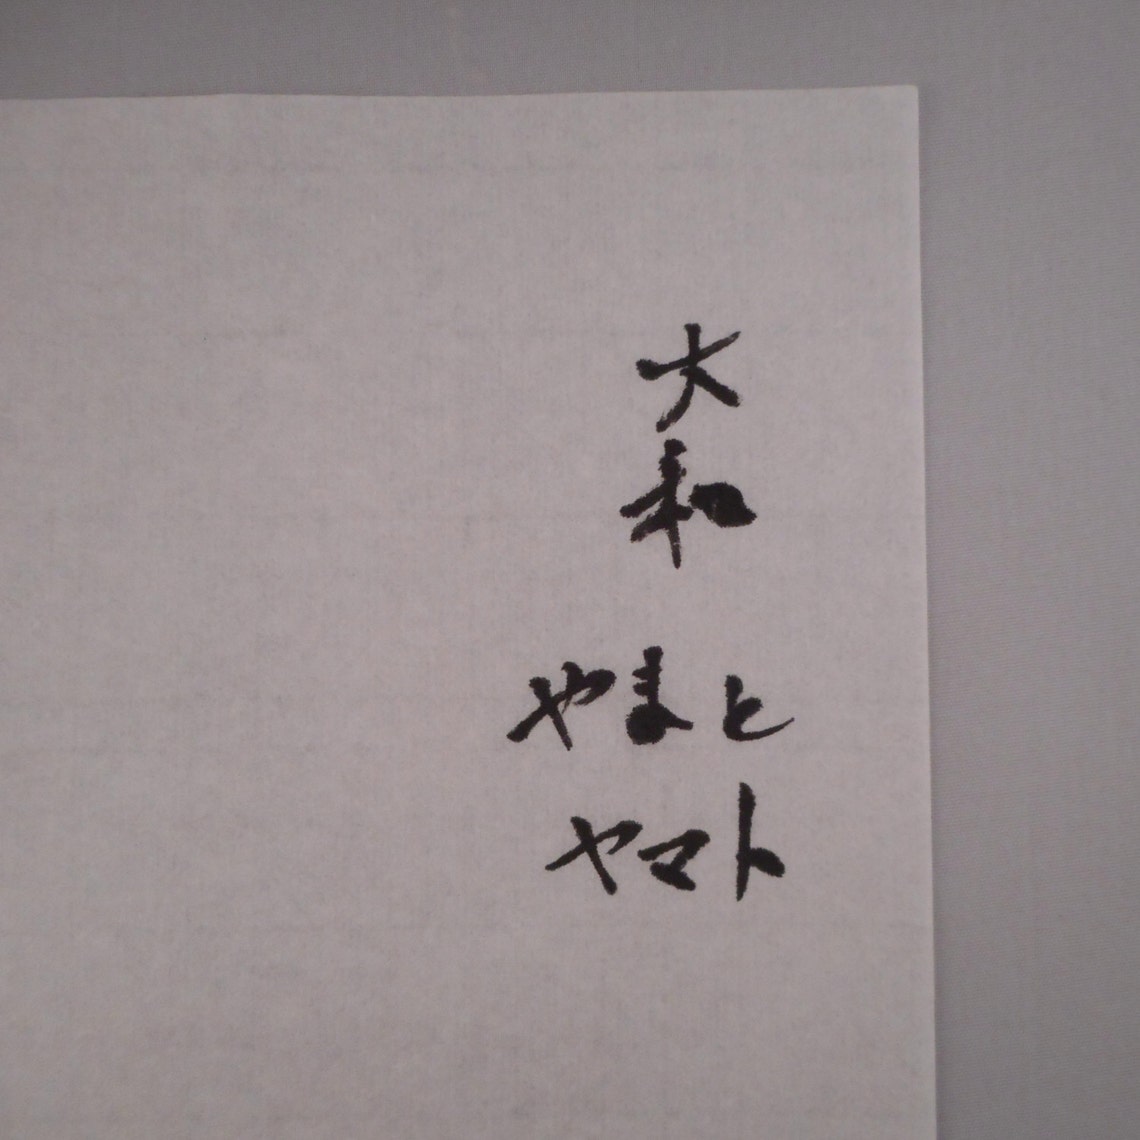 大和
やまと
ヤマト